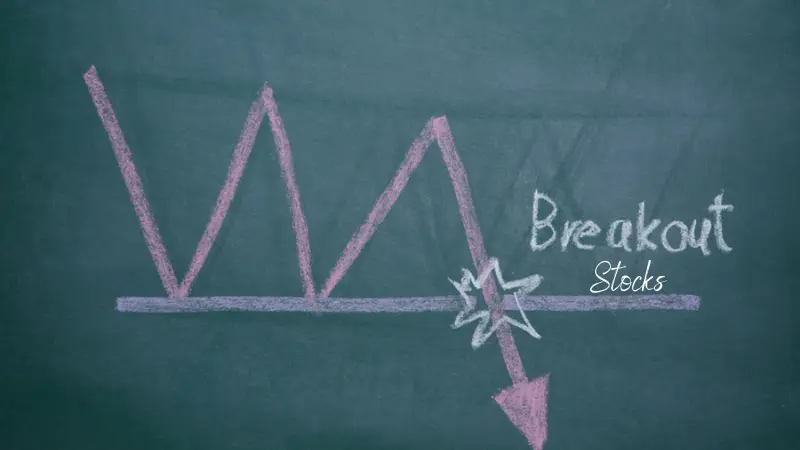 Breakout
Stocks